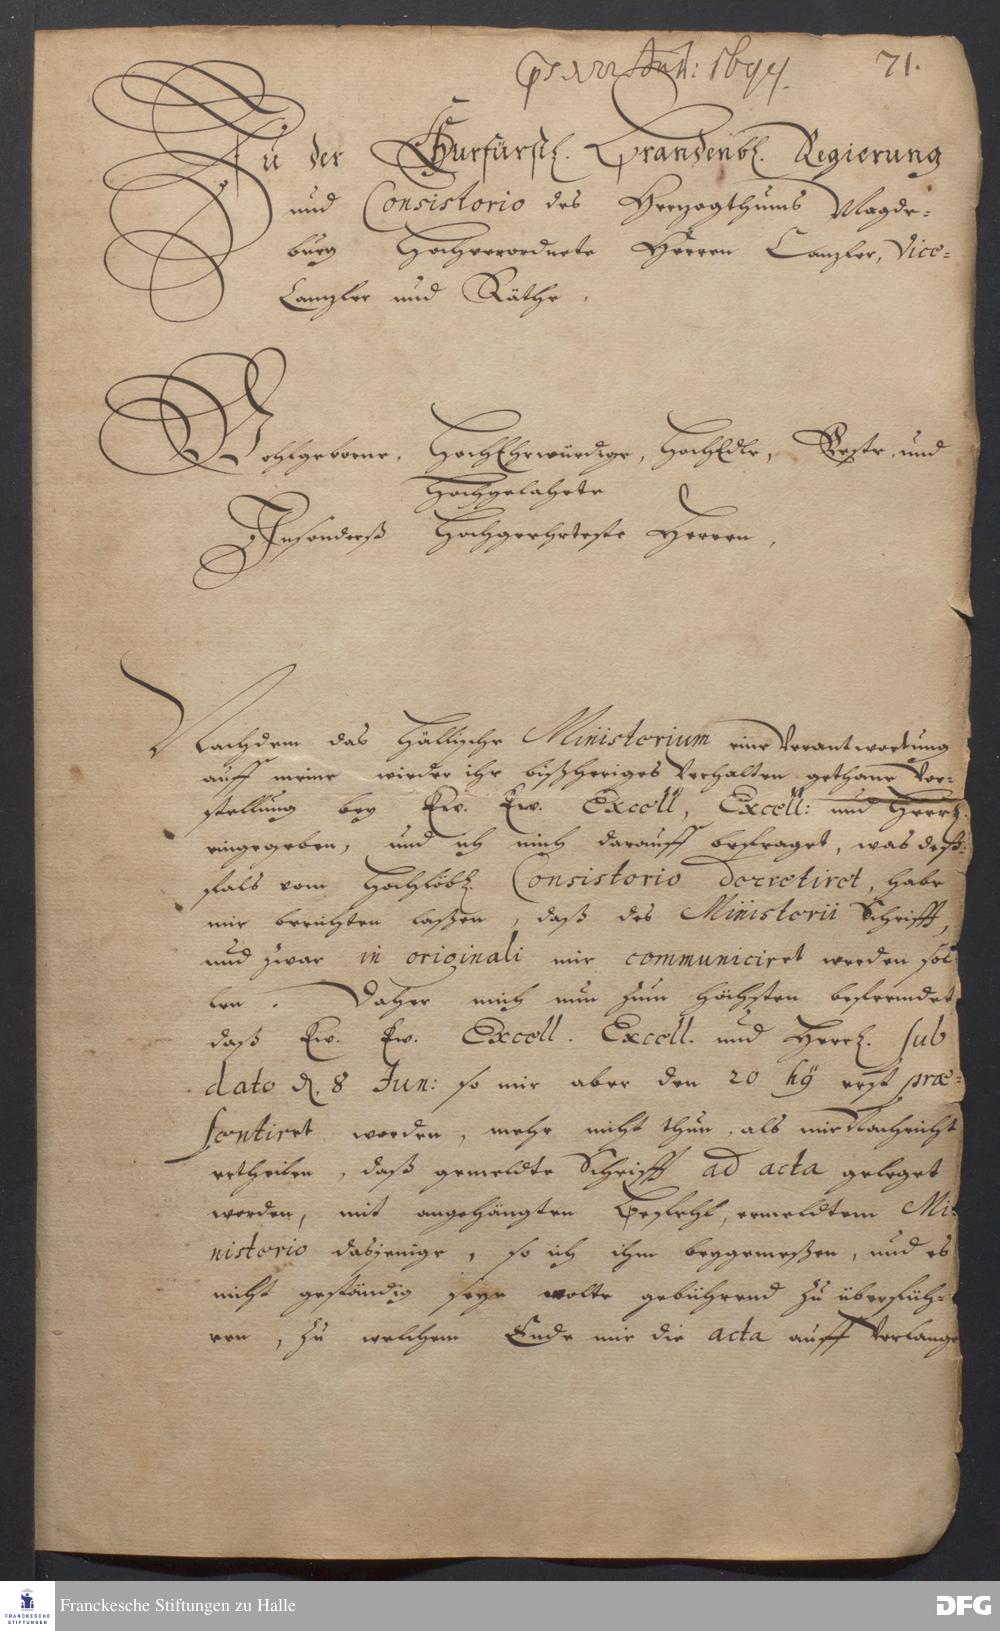 71.
1694
Zu der Churfürstl. Brandenbl. Regierung
und Consistorio des Hertzogthums Magde-
burg Hochverordnete Herren Cantzler, Vice-
Cantzler und Räthe,
Wohlgeborne, HochEhrwürdige, HochEdle, Veste und
Hochgelahrte
Insonderß Hochgeehrteste Herren,
Nachdem das Hällische Ministerium eine Verantwortung
auff meine wieder ihr bißheriges Verhalten gethane Vor-
stellung bey Ew. Ew. Excell, Excell: und Herrl.
eingegeben, und ich mich darauff befraget, was deß-
fals vom Hochlöbl. Consistorio decretiret, habe
mir berichten laßen, daß des Ministerii Schrifft,
und zwar in originali mir communiciret werden sol-
len. Daher mich nun zum höchsten befremdet
daß Ew. Ew. Excell. Excell. und Herrl. sub
dato d. 8 Jun: so mir aber den 20 hỹ erst præ-
sentiret worden, mehr nicht thun, als mir Nachricht
ertheilen, daß gemeldte Schrifft ad acta geleget
worden, mit angehängten Befehl, ermeldtem Mi-
nisterio dasjenige, so ich ihm beygemeßen, und es
nicht geständig seyn wolte gebührend zu überfüh-
ren, zu welchem Ende mir die acta auff Verlange
FRANCKESCHE
STIFTUNGEN
Franckesche Stiftungen zu Halle
DFG